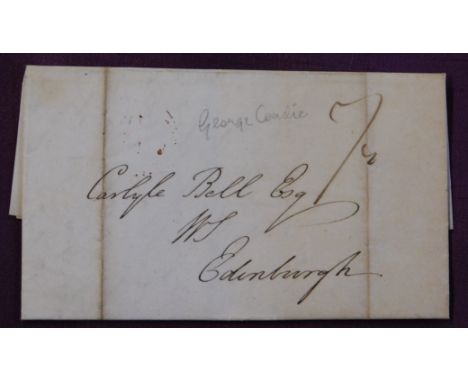 George
7
Carlyle Bell Esq
WS
Edinburgh